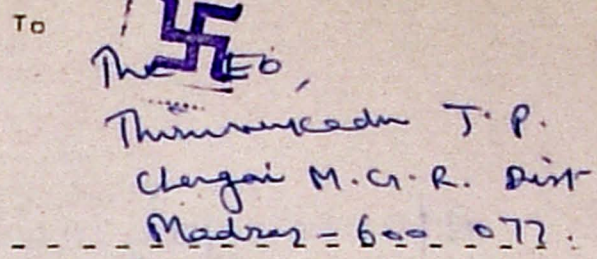 To
The EO,
Thiruverkadu T.P.
Chengai M.G.R. Dist
Madras - 600 077.